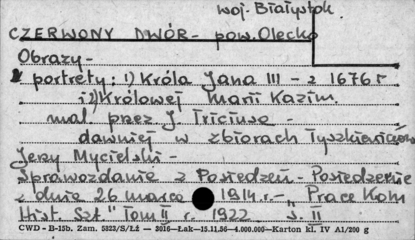 woj. Białystok
CZERWONY DWÓR - pow. Olecko
Obrazy -
portrety: 1) Króla Jana III - z 1676 r
i 2) Królowej Marii Kazim.
mal przez J. Triciusa -
dawniej w zbiorach Tyszkiewiczów
Jerzy Mycielski -
Sprawozdanie z Posiedzeń - Posiedzenie
z dnia 26 marca 1914 r. - „Prace Kom
Hist. Szt." Tom II r. 1922 s. II
CWD - B-15b. Zam. 5323/S/Łż — 3016—Łak—15.11.56—4.000.000—Karton kl. IV A1/200 g